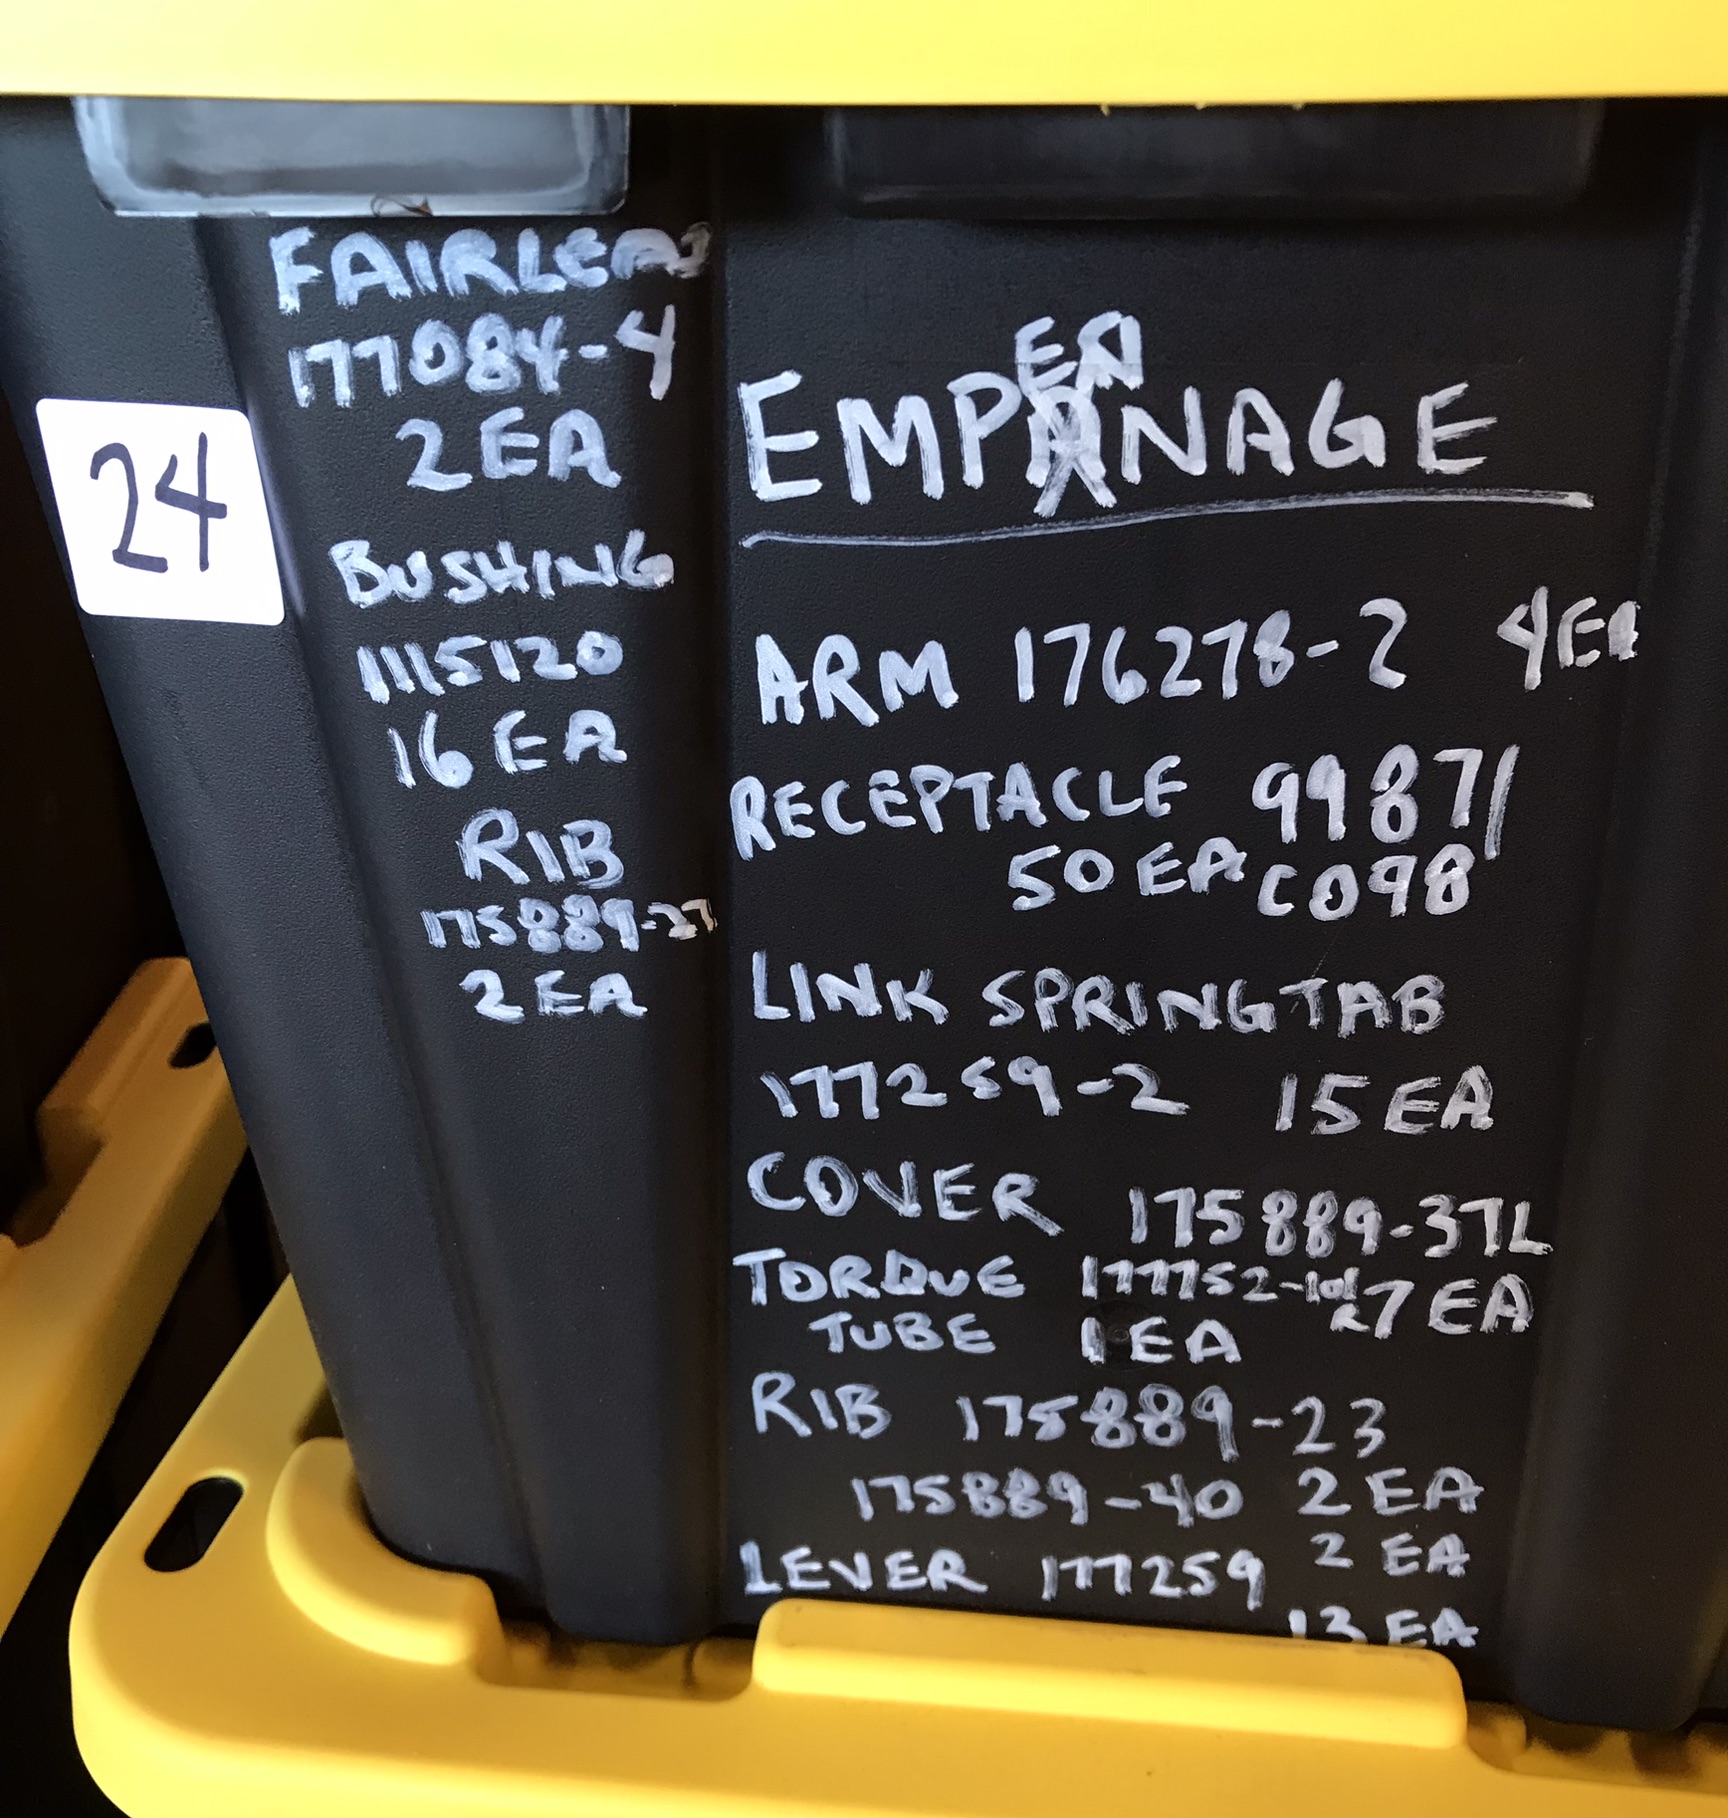 24
FAIRLEAD
177084-4
2 EA
BUSHING
1115120
16 EA
RIB
175889-27
2 EA
EN
EMPANAGE
ARM 176278-2 4EA
RECEPTACLE 99871
50 EA C098
LINK SPRING TAB
177259-2 15 EA
COVER 175889-37L
27 EA
TORQUE 177752-101
TUBE 1 EA
RIB 175889-23
2 EA
175889-40
2 EA
LEVER 177259
13 EA